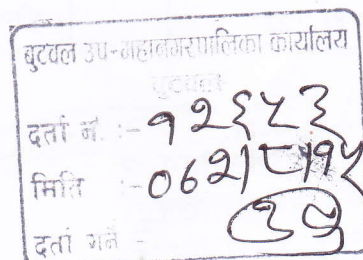 बुटवल उप-महानगरपालिका कार्यालय
बुटवल
दर्ता नं. :- १२६५३
मिति :- ०७२।८।१५
दर्ता गर्ने -